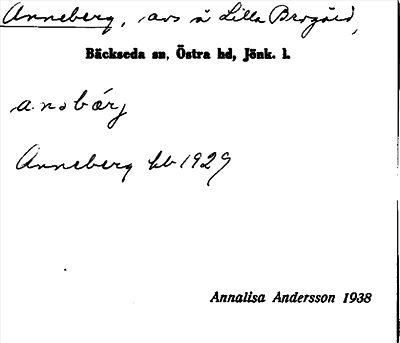 Anneberg, avs å Lilla Brogård,
Bäckseda sn, Östra hd, Jönk. l.
Anneberg kb 1929
Annalisa Andersson 1938